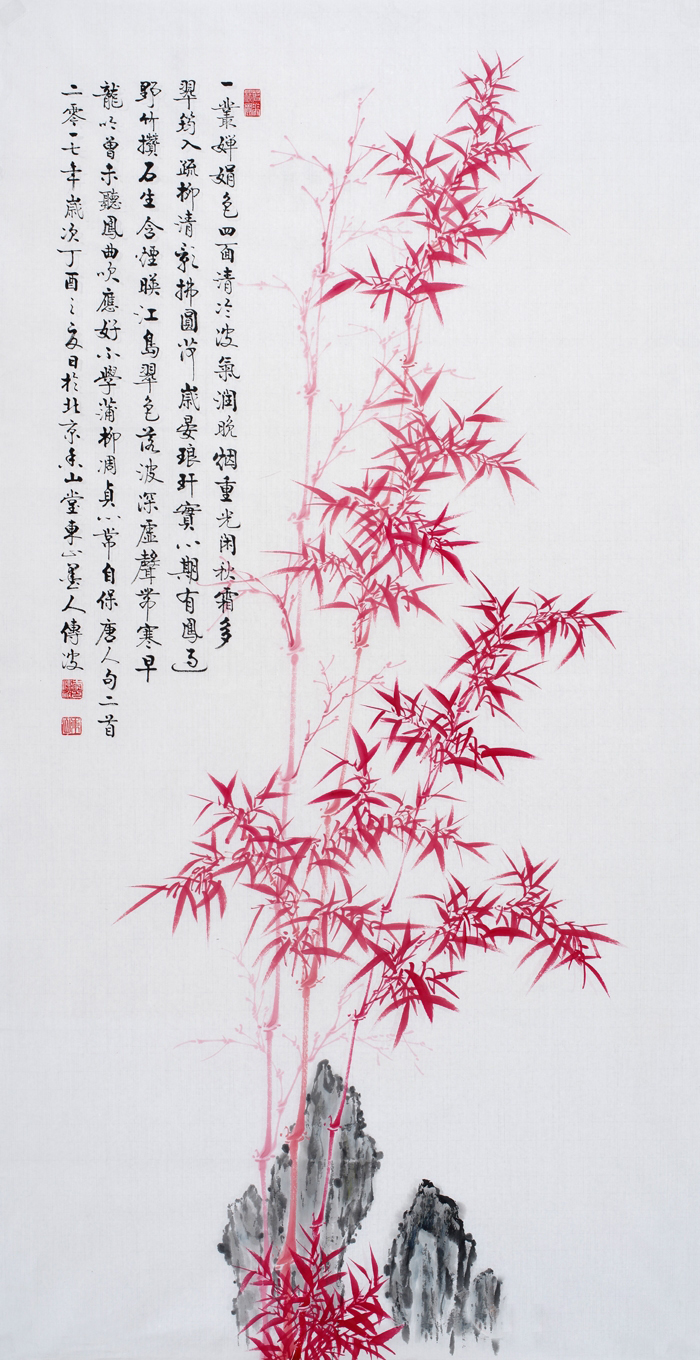 一叢嬋娟色四面清冷波氣潤晚烟重光閑秋霜多
翠筠入疏柳清影拂圓荷歲晏琅玕實心期有鳳過
野竹攢石生含煙映江島翠色落波深虛聲帶寒早
龍吟曾未聽鳳曲吹應好不學蒲柳凋貞心常自保唐人句二首
二零一七年歲次丁酉之夏日於北京香山堂東山墨人傳波